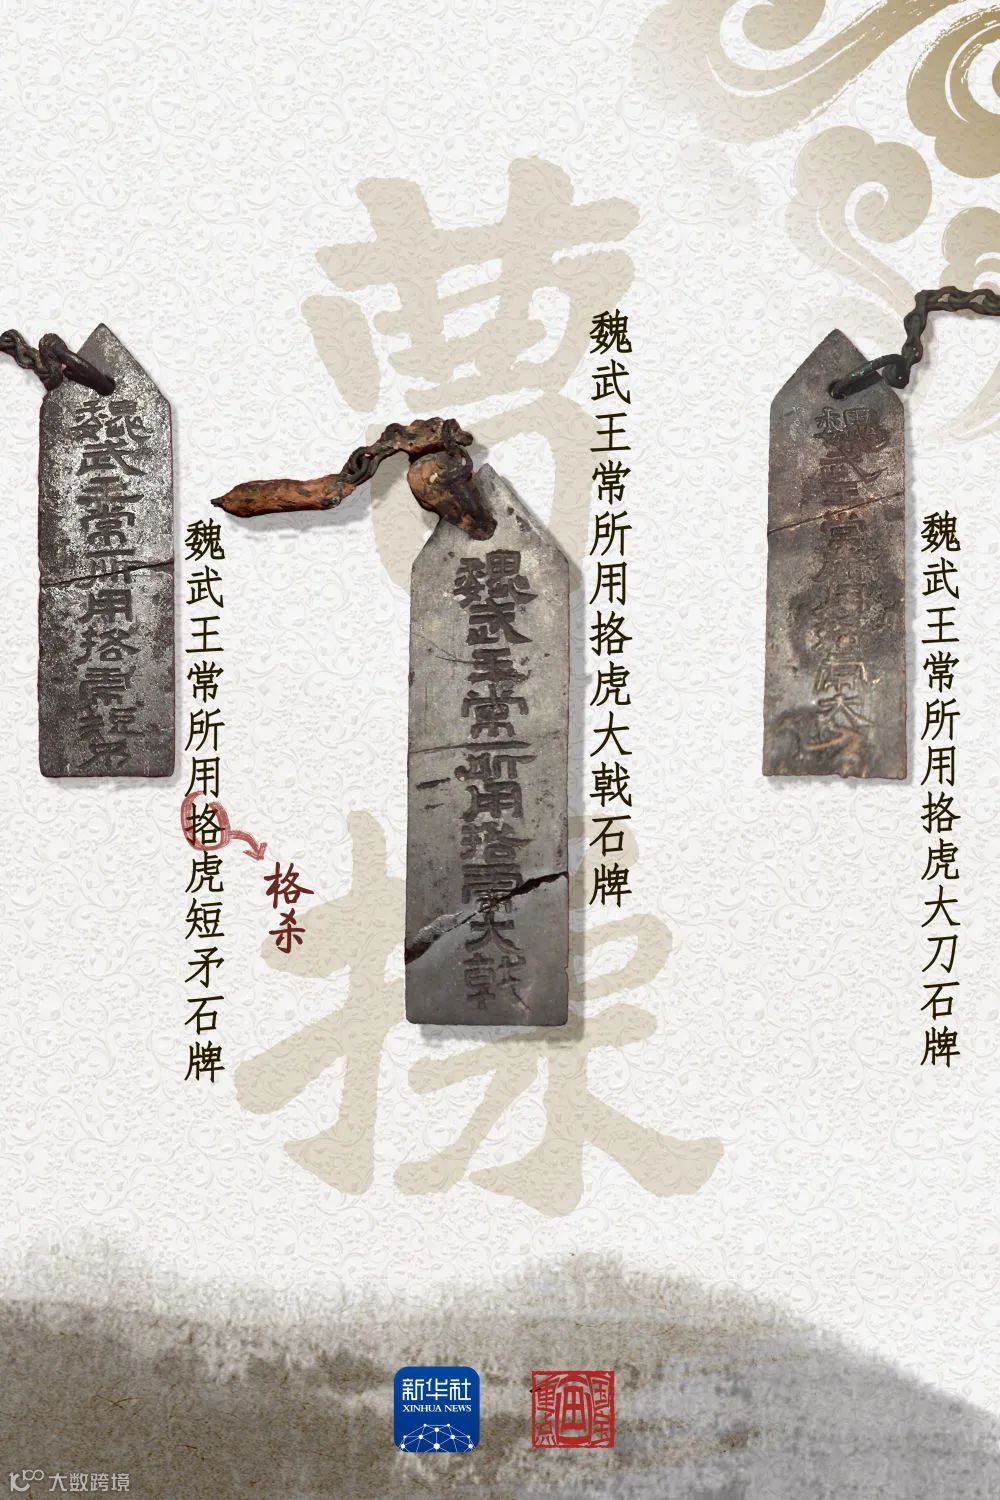 曹操
魏武王常所用挌虎大戟石牌
魏武王常所用挌虎短矛石牌
格杀
魏武王常所用挌虎大刀石牌
魏武王常所用挌虎短矛
魏武王常所用挌虎大戟
魏武王常所用挌虎大刀
新华社
XINHUA NEWS
大数跨境